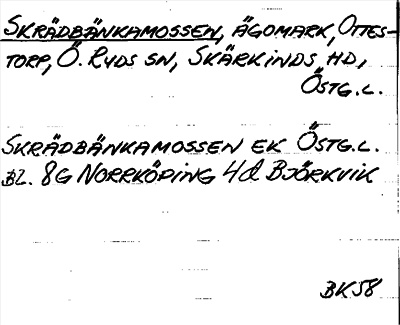 SKRÄDBÄNKAMOSSEN, ÄGOMARK, OTTES-
TORP, Ö. RYDS SN, SKÄRKINDS HD,
ÖSTG.L.
SKRÄDBÄNKAMOSSEN EK ÖSTG.L.
BL. 8G NORRKÖPING 4d BJÖRKVIK
BK58